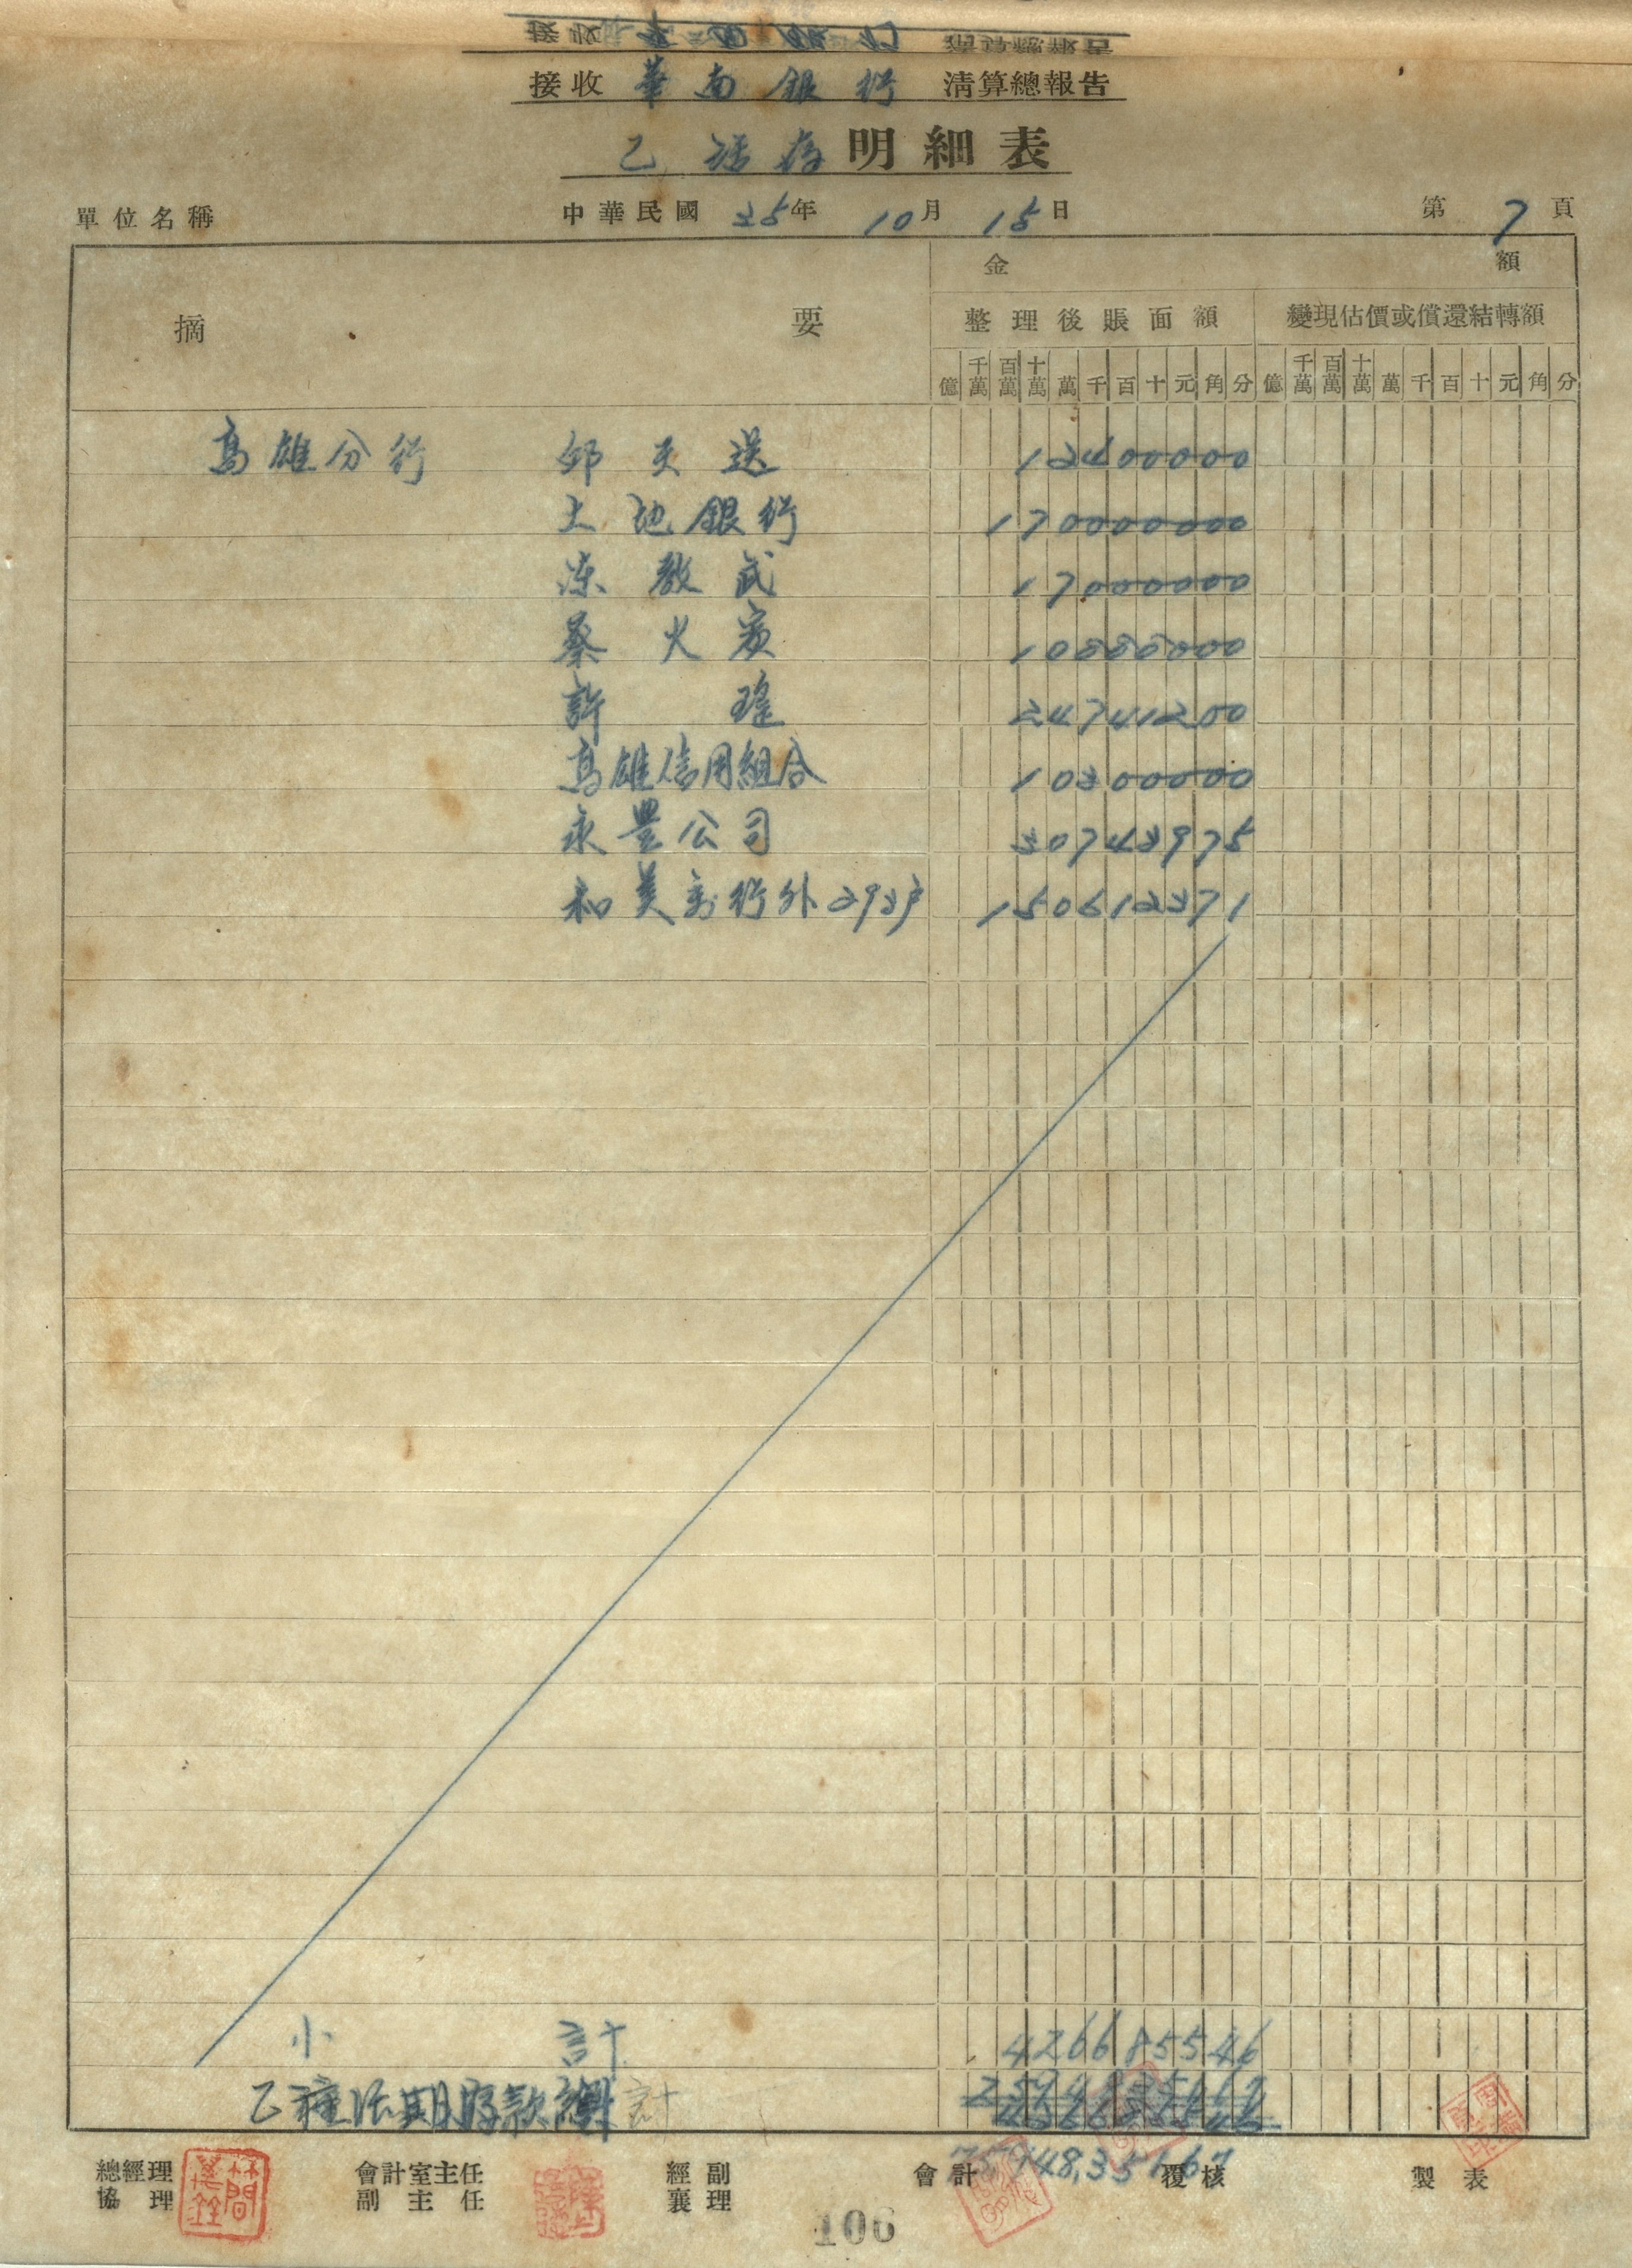 接收 華南銀行 清算總報告
接收 華南銀行 清算總報告
乙活存明細表
單位名稱 中華民國 35年 10月 15日 第 7 頁
金 額
摘 要 整理後賬面額 變現估價或償還結轉額
億 千萬 百萬 十萬 萬 千 百 十 元 角 分 億 千萬 百萬 十萬 萬 千 百 十 元 角 分
高雄分行 邱天送 12400000
土地銀行 170000000
陳教武 17000000
蔡火炭 10888000
許瑤 24741200
高雄信用組合 10300000
永豐公司 30743975
和美商行外293戶 150612371
小計 426685546
乙種活期存款總計
總經理 會計室主任 經副 會計 覆核 製表
協理 副主任 襄理
106